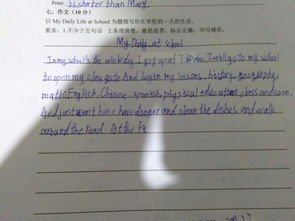 Peter is shorter than Mary.
七、作文（10分）
以 My Daily Life at School 为题描写你在学校的一天的生活。
要求：1.不少于五句话 2.条理清楚，意思连贯，标点正确，书写规范。
My Daily at school
In my school's the I get up at 7 to my school
to open my class gate And began my lessons, history, geography
math English, Chinese, spanish, physical education class and soon.
And just went home have dinner and clean the dishes and walk
around the road. At the